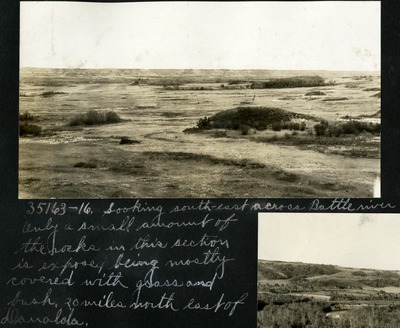 35163-16. Looking south-east across Battle river
Only a small amount of
the rocks in this section
is expose, being mostly
covered with grass and
bush, 20 miles north east of